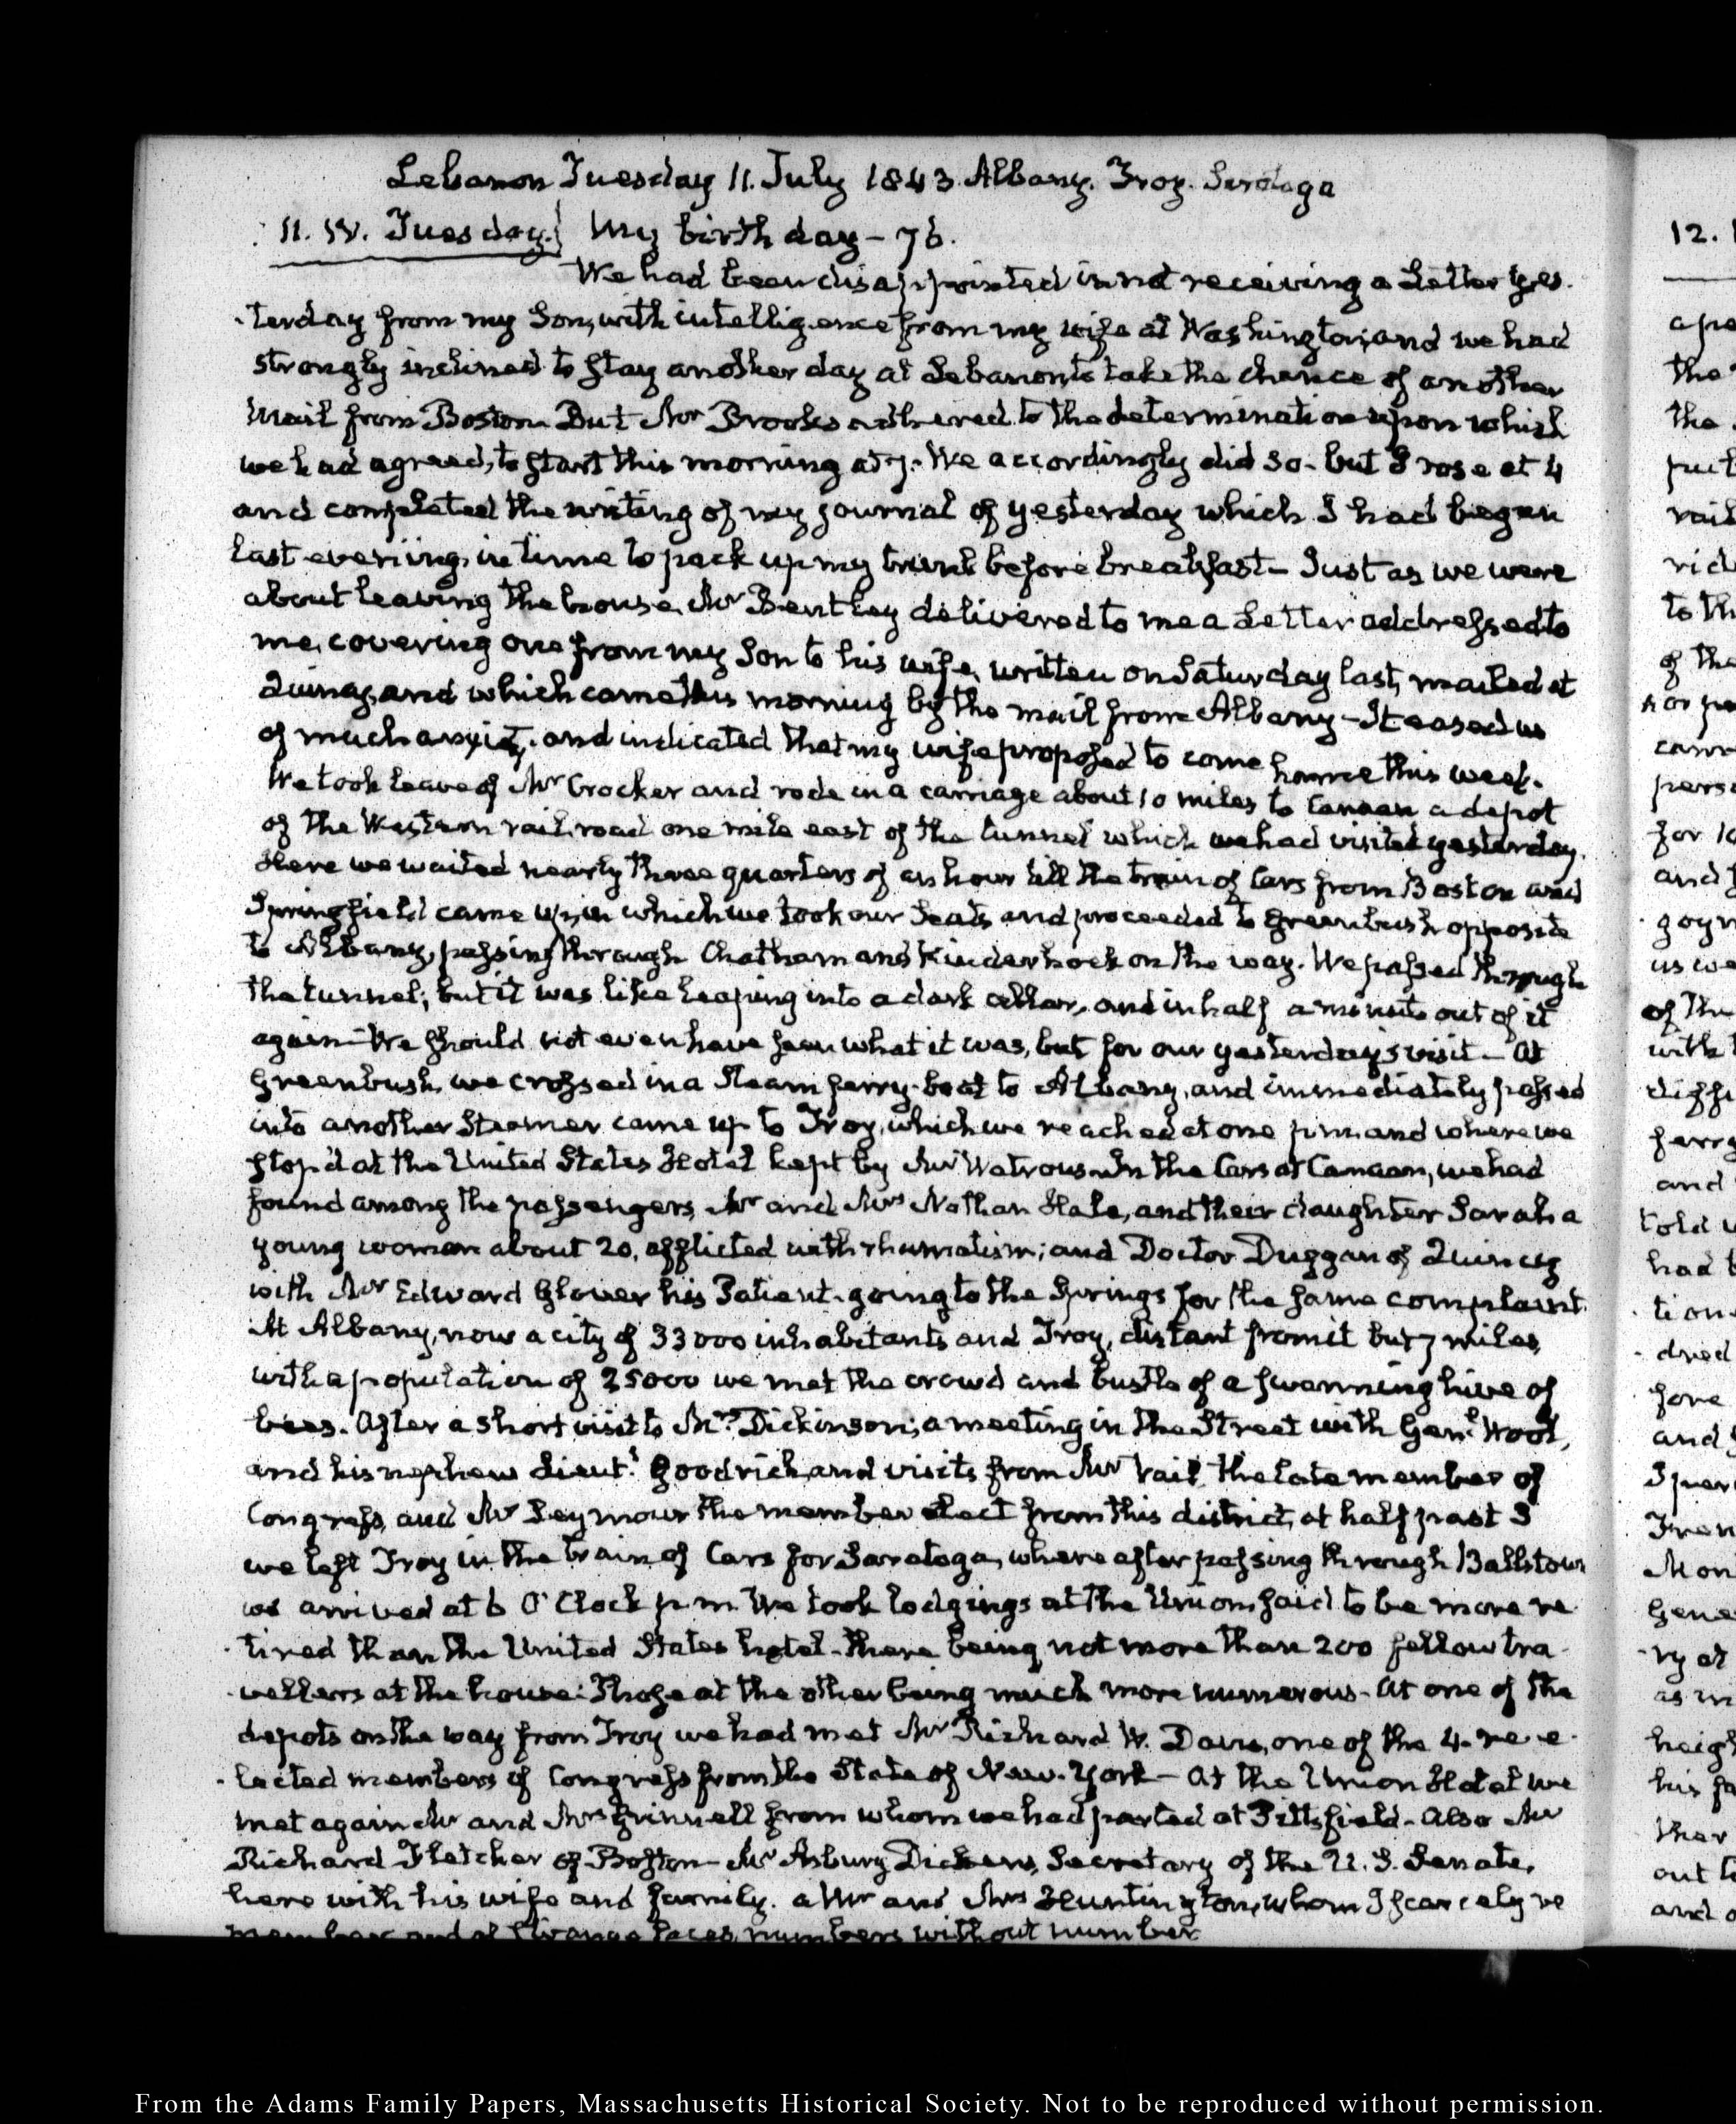 Lebanon Tuesday 11. July 1843. Albany. Troy. Saratoga
11. IV. Tuesday.} My birth day - 76.
We had been disappointed in not receiving a Letter yes-
terday from my Son, with intelligence from my wife at Washington, and we had
strongly inclined to stay another day at Lebanon to take the chance of another
mail from Boston. But Mr Brooks adhered to the determination upon which
we had agreed, to start this morning at 7. We accordingly did so. but I rose at 4
and completed the writing of my journal of yesterday which I had began
last evening, in time to pack up my trunk before breakfast - Just as we were
about leaving the house, Mr Bentley delivered to me a Letter addressed to
me, covering one from my Son to his wife, written on Saturday last, mailed at
Quincy, and which came this morning by the mail from Albany - It eased us
of much anxiety, and indicated that my wife proposed to come home this week.
We took leave of Mr Crocker and rode in a carriage about 10 miles to Canaan a depot
of the Western rail road one mile east of the tunnel which we had visited yesterday.
Here we waited nearly three quarters of an hour till the train of Cars from Boston and
Springfield came up, in which we took our seats and proceeded to Greenbush opposite
to Albany, passing through Chatham and Kinderhook on the way. We passed through
the tunnel; but it was like leaping into a dark cellar, and in half a minute out of it
again - We should not even have seen what it was, but for our yesterday's visit - At
Greenbush we crossed in a steam ferry-boat to Albany, and immediately passed
into another Steamer came up to Troy, which we reached at one p.m. and where we
stop'd at the United States Hotel kept by Mr Watrous. In the Cars at Canaan, we had
found among the passengers, Mr and Mrs Nathan Hale, and their daughter Sarah a
young woman about 20, afflicted with rhumatism; and Doctor Duggan of Quincy
with Mr Edward Glover his Patient going to the Springs for the same complaint.
At Albany, now a city of 33000 inhabitants and Troy, distant from it but 7 miles,
with a population of 25000 we met the crowd and bustle of a swarming hive of
bees. After a short visit to Mrs Dickinson; a meeting in the Street with Genl. Wool,
and his nephew Lieutt. Goodrich, and visits from Mr Vail the late member of
Congress, and Mr Seymour the member elect from this district, at half past 3
we left Troy in the train of Cars for Saratoga, where after passing through Ballstown
we arrived at 6 O'Clock p.m. We took lodgings at the Union, said to be more re-
tired than the United States hotel - there being not more than 200 fellow tra-
vellers at the house: Those at the other being much more numerous - At one of the
depots on the way from Troy we had met Mr Richard W. Davis, one of the 4. re-e-
lected members of Congress from the State of New-York - At the Union Hotel we
met again Mr and Mrs Grinnell from whom we had parted at Pittsfield - Also Mr
Richard Fletcher of Boston - Mr Asbury Dickens, Secretary of the U.S. Senate,
here with his wife and family. a Mr and Mrs Huntington, whom I scarcely re
member and of strange faces, numbers without number
12.
From the Adams Family Papers, Massachusetts Historical Society. Not to be reproduced without permission.